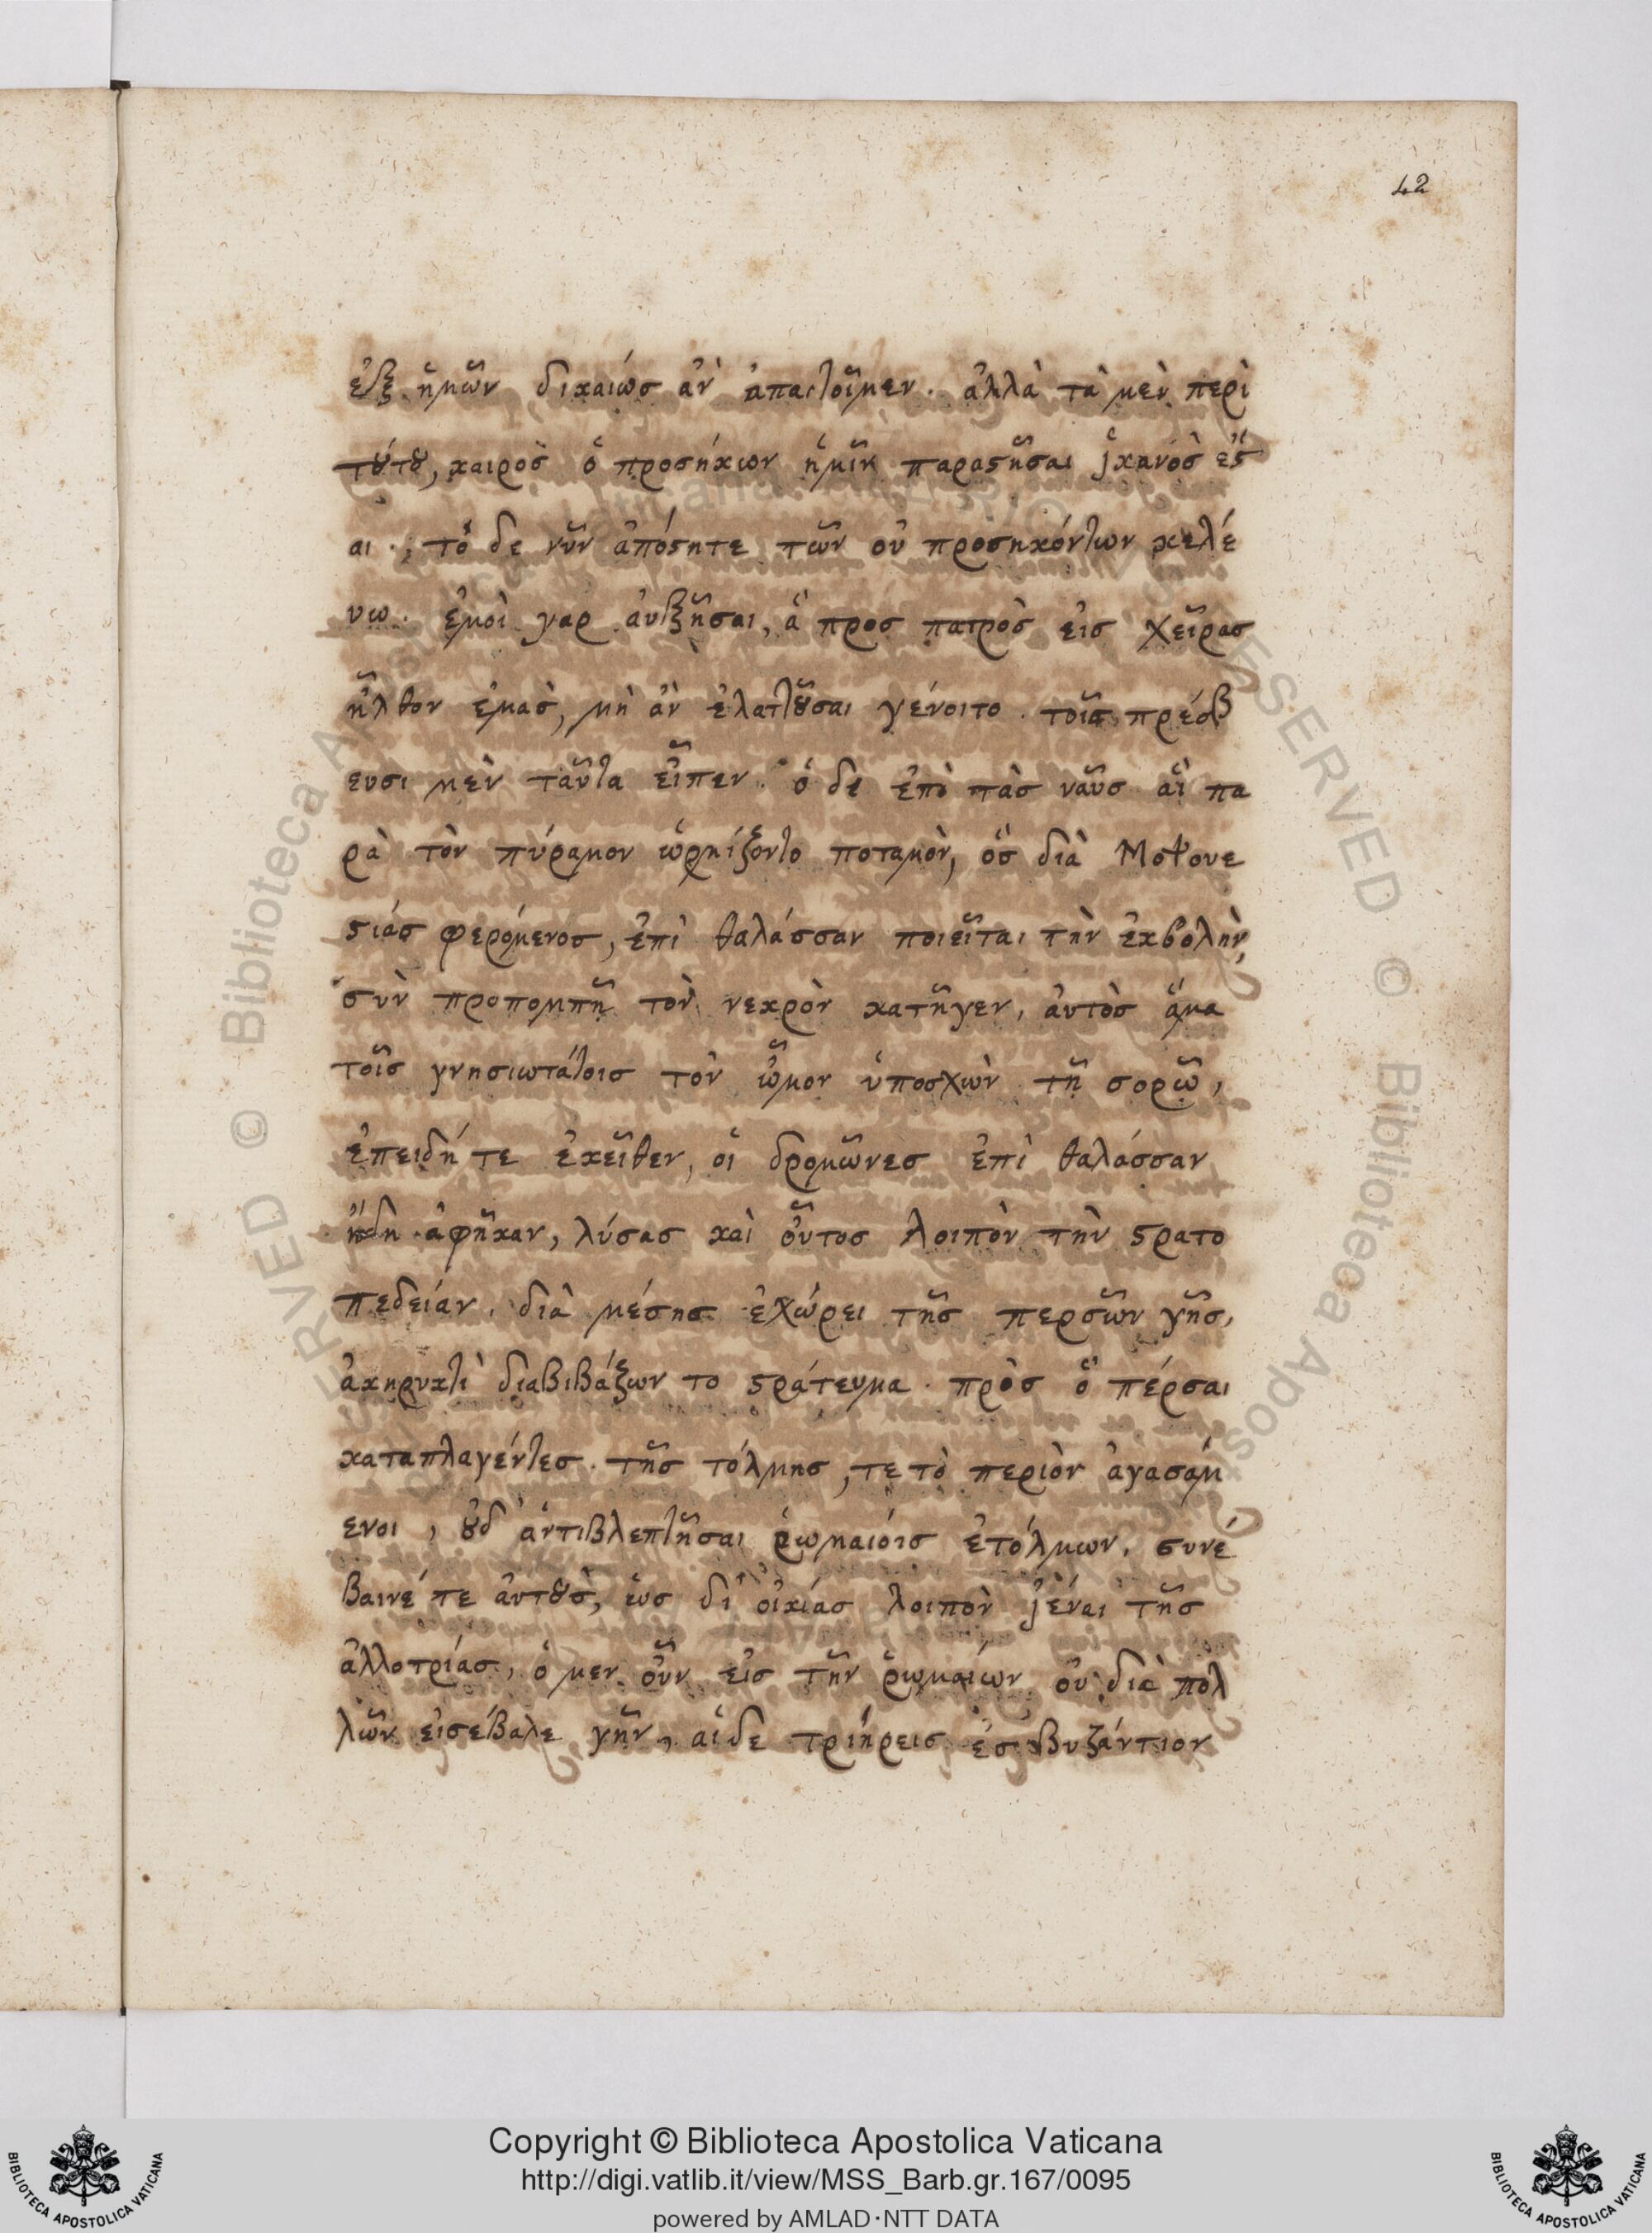 42
ἐξ ἡμῶν δικαίως ἀν ἀπαιτοῖμεν. ἀλλὰ τὰ μεν περὶ
τȣ́τȣ, καιρὸς ὁ προσήκων ἡμῖν παραϛῆσαι ἱκανὸς ἔϛ
αι. τὸ δε νῦν ἀπόϛητε τῶν οὐ προσηκόντων κελέ
υω. ἐμοὶ γαρ ἀυξῆσαι, ἃ προς πατρὸς εἰς χεῖρας
ἦλθον ἐμας, μὴ ἀν ἐλαττȣ͂σαι γένοιτο. τοῖς πρέσβ
ευσι μὲν ταῦτα εἶπεν. ὁ δε ἐπὶ τὰς ναῦς αἳ πα
ρὰ τὸν πύραμον ὡρμίζοντο ποταμὸν, ὃς διὰ Μοψουε
ϛιάς φερόμενος, ἐπὶ θαλάσσαν ποιεῖται τὴν ἐκβολὴν,
σὺν προπομπῇ τὸν νεκρὸν κατῆγεν, ἀυτὸς ἅμα
τοῖς γνησιωτάτοις τὸν ὦμον ὑποσχὼν τῇ σορῷ,
ἐπειδή τε ἐκεῖθεν, οἱ δρομῶνες ἐπὶ θαλάσσαν
ἤδη ἀφῆκαν, λύσας καὶ οὗτος λοιπὸν τὴν ϛρατο
πεδείαν. διὰ μέσης ἐχώρει τῆς περσῶν γῆς,
ἀκηρυκτὶ διαβιβάζων το ϛράτευμα. πρὸς ὃ πέρσαι
καταπλαγέντες. τῆς τόλμης, τε τὸ περιὸν ἀγασάμ
ενοι, ȣ̓δ' ἀντιβλεπτῆσαι ῥωμαιόις ἐτόλμων. συνέ
βαινέ τε ἀυτȣ̀ς, ὡς δι' οἰκίας λοιπὸν ἰέναι τῆς
ἀλλοτρίας, ὁ μεν οὖν εἰς τῆν ῥωμαίων οὐ διὰ πολ
λῶν εἰσέβαλε γῆν, αἱ δε τριήρεις ἐς Βυζάντιον
Copyright © Biblioteca Apostolica Vaticana
http://digi.vatlib.it/view/MSS_Barb.gr.167/0095
powered by AMLAD·NTT DATA
BIBLIOTECA APOSTOLICA VATICANA
BIBLIOTECA APOSTOLICA VATICANA